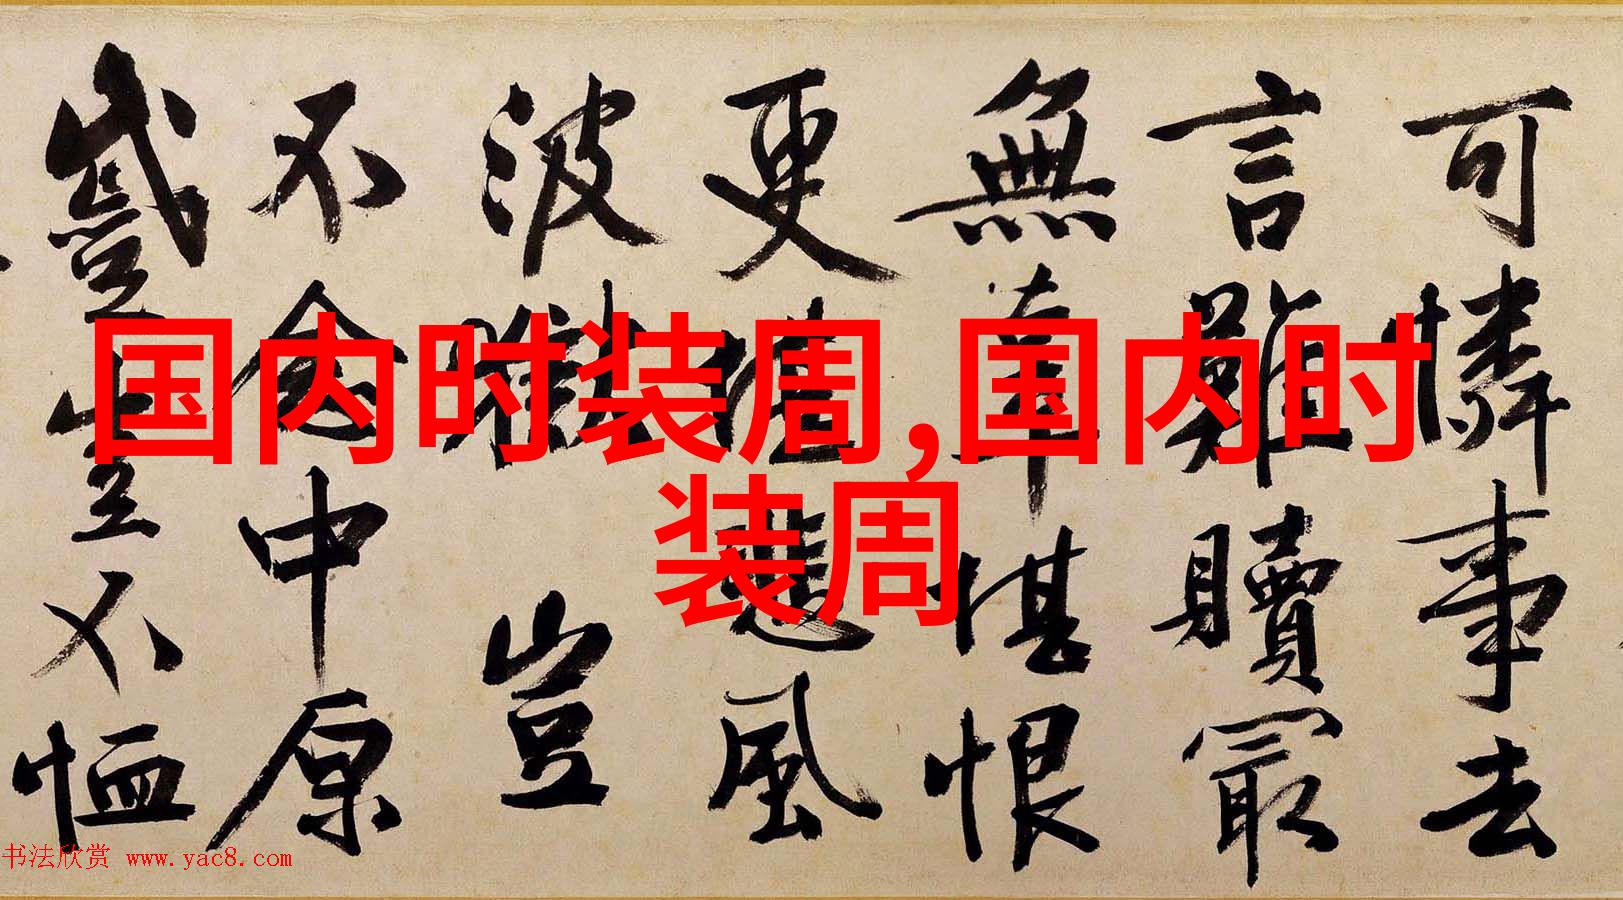 国内时装周,国内时
装周
可憐事去
言難贖最
無辜堪恨
更悲風
波獄豈
不念中原
蹙豈不恤
书法欣赏 www.yac8.com